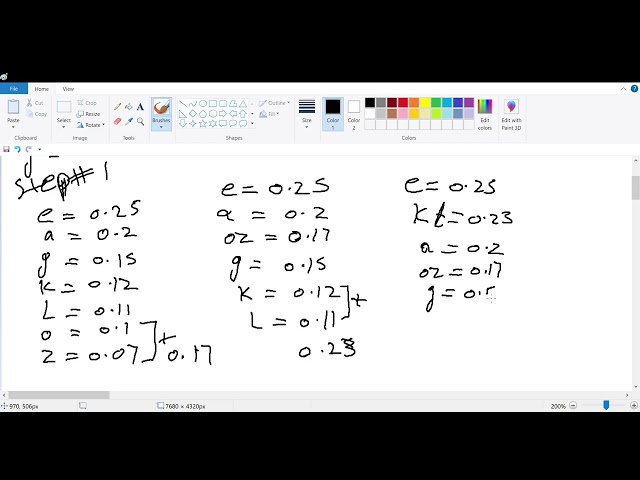 File
Home
View
Paste
Clipboard
Select
Crop
Resize
Rotate
Image
Tools
Brushes
Shapes
Outline
Fill
Size
Color 1
Color 2
Colors
Edit colors
Edit with Paint 3D
Step# 1
e = 0.25
a = 0.2
g = 0.15
K = 0.12
L = 0.11
o = 0.1
z = 0.07
+
0.17
e = 0.25
a = 0.2
oz = 0.17
g = 0.15
K = 0.12
L = 0.11
+
0.23
e = 0.25
KL = 0.23
a = 0.2
oz = 0.17
g = 0.5
970, 506px
7680 × 4320px
200%